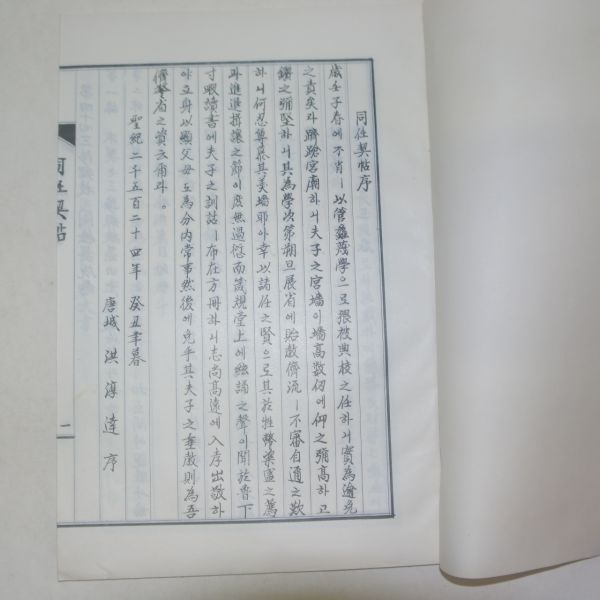 同任契帖序
歲壬子春에 不肖ㅣ 以管蠡蔑學으로 猥被典校之任하니 實為濫免
之責矣라 躋蹌宮廟하니 夫子之宮墻이 墻高數仞에 仰之彌高하고
鑽之彌堅하니 其為學次第 朔旦展省에 貽教儕流ㅣ 不審自適之歎
하니 何忍尊慕其美墻耶아 幸以諸任之賢으로 其於牲幣粢盛之薦
과 進進揖讓之節이 庶無過愆而箴規堂上에 絃誦之聲이 聞於魯下
寸暇讀書에 夫子之訓誥ㅣ 布在方冊하니 志尚高遠에 入孝出敬하
야 立身以顯父母도 為分內常事 然後에 免乎其夫子之垂戲則為吾
儕警省之資云爾라。
聖紀二千五百二十四年 癸丑 暮
唐城 洪淳達 序
同任契帖
二